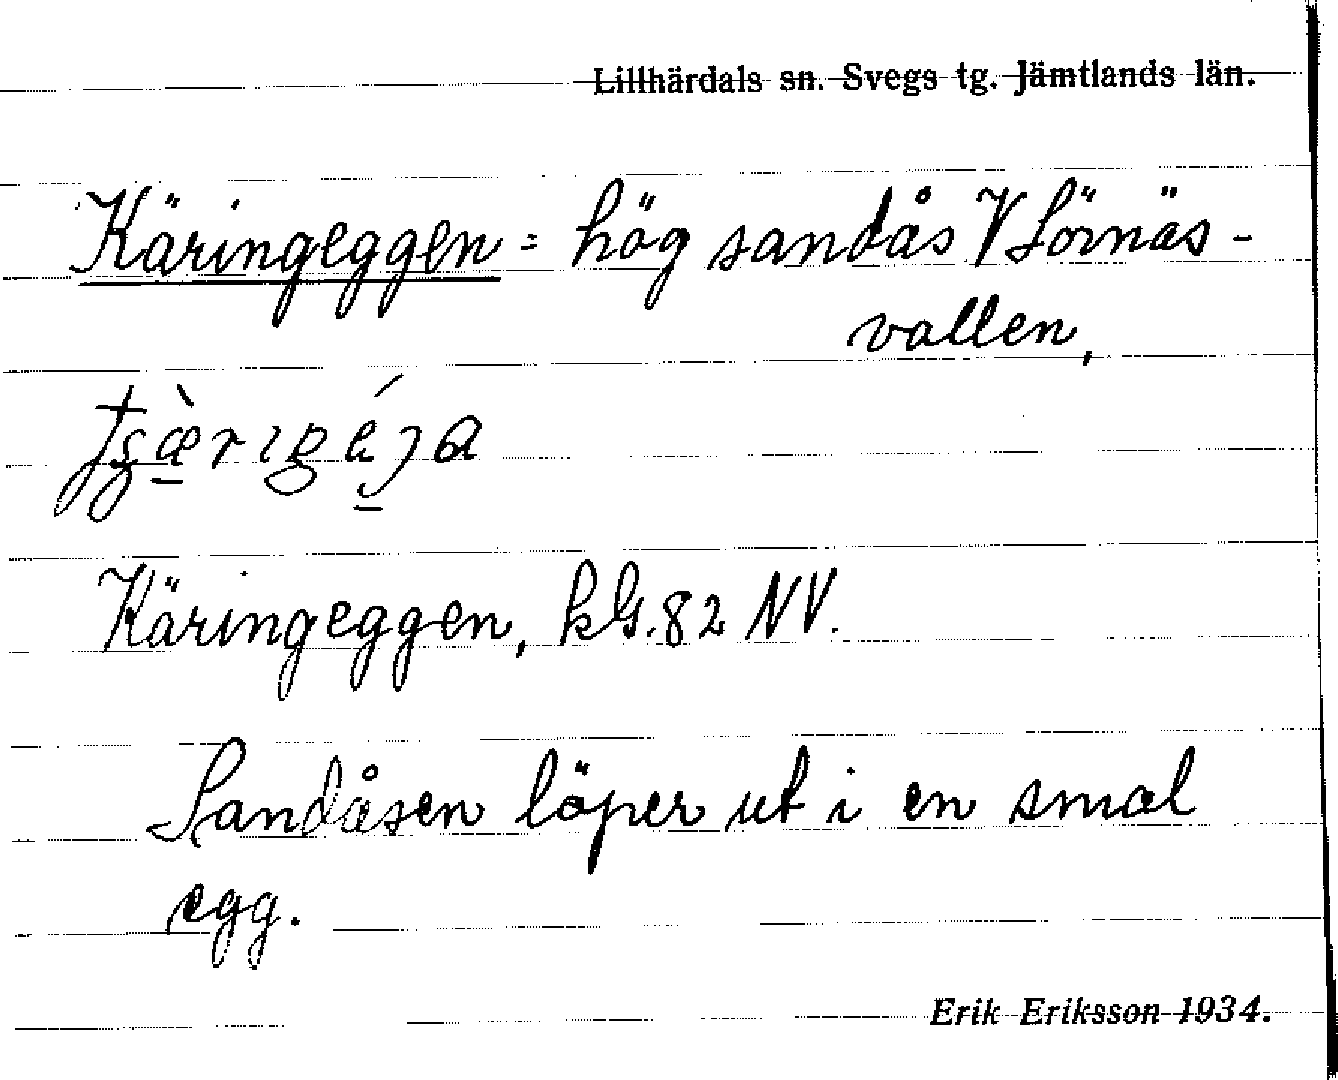 Lillhärdals sn. Svegs tg. Jämtlands län.
Käringeggen = hög sandås V Sörnäs-
vallen,
Käringeggen, kG.82 NV.
Sandåsen löper ut i en smal
egg.
Erik Eriksson 1934.